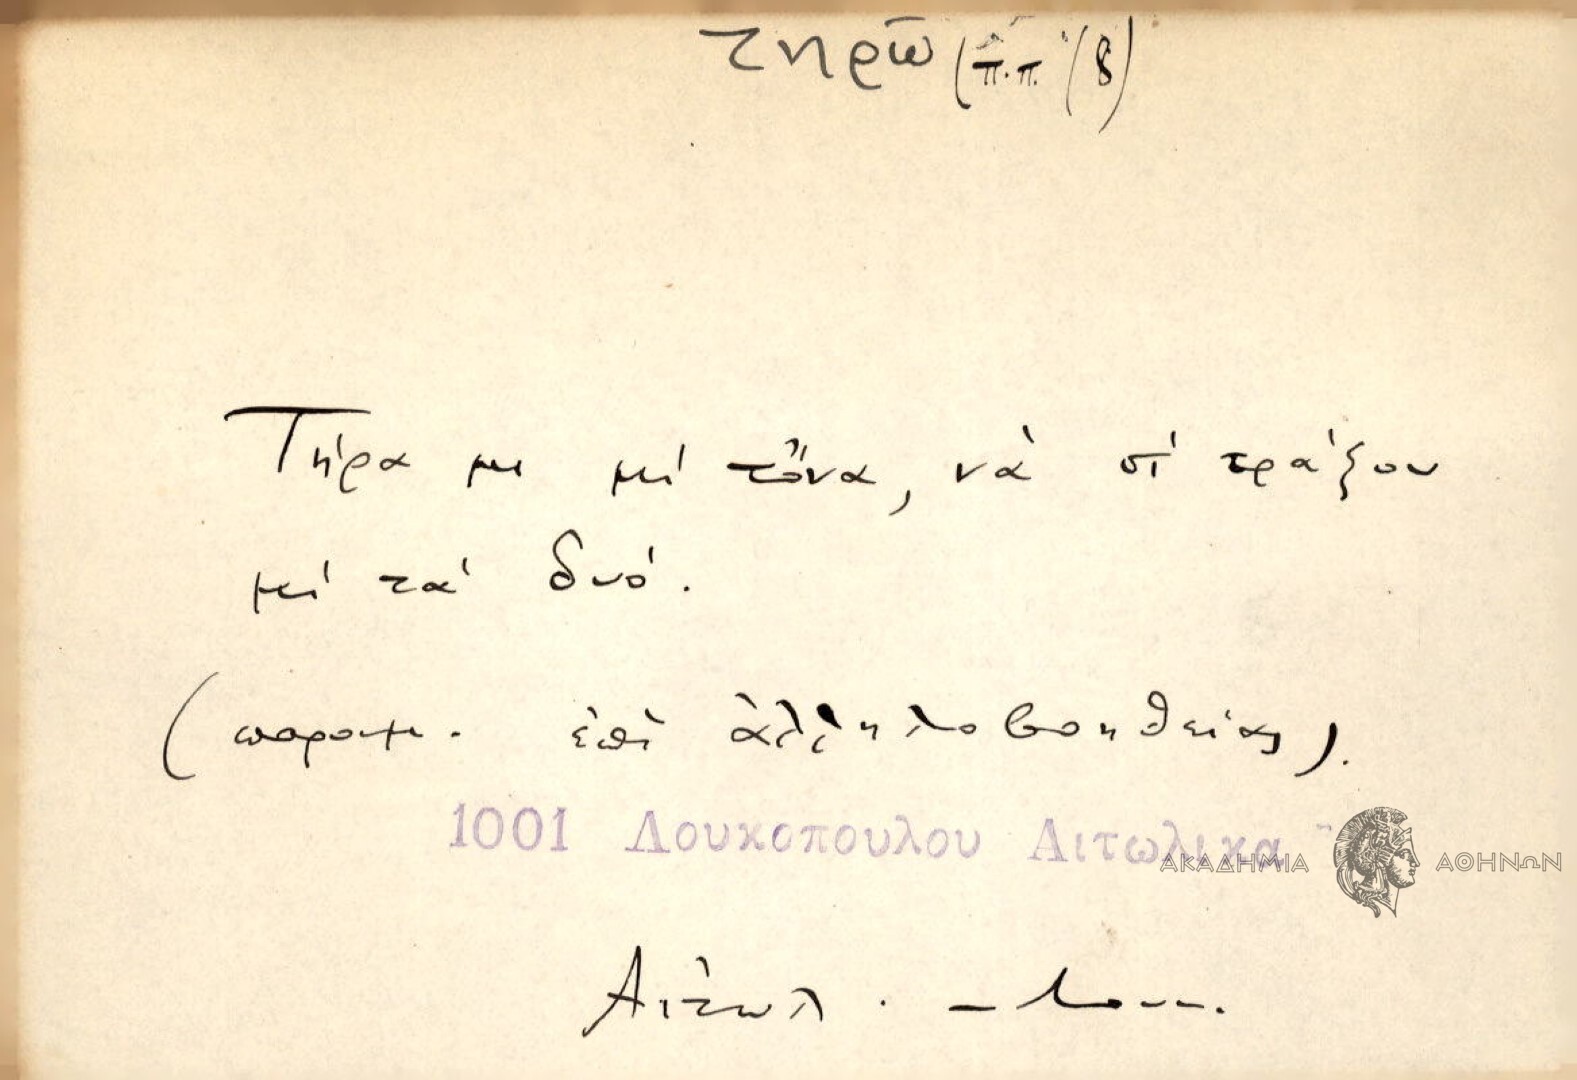 τηρῶ (π.π. 18)
Τήρα με μὲ τὄνα, νὰ σὲ τράξου
μὲ τὰ δυό.
(παροιμ. ἐπὶ ἀλληλοβοηθείας).
1001 Λουκοπουλου Αιτωλικα
ΑΚΑΔΗΜΙΑ ΑΘΗΝΩΝ
Αἰτωλ. – Λουκ.